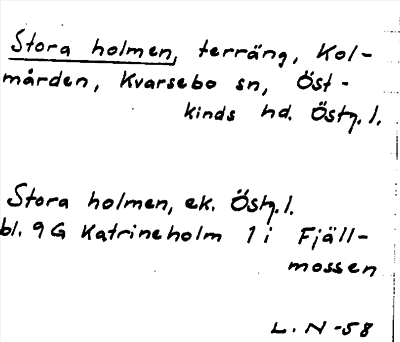 Stora holmen, terräng, Kol-
mården, Kvarsebo sn, Öst-
kinds hd. Östg. l.
Stora holmen, ek. Östg. l.
bl. 9 G Katrineholm 1 i Fjäll-
mossen
L. N -58